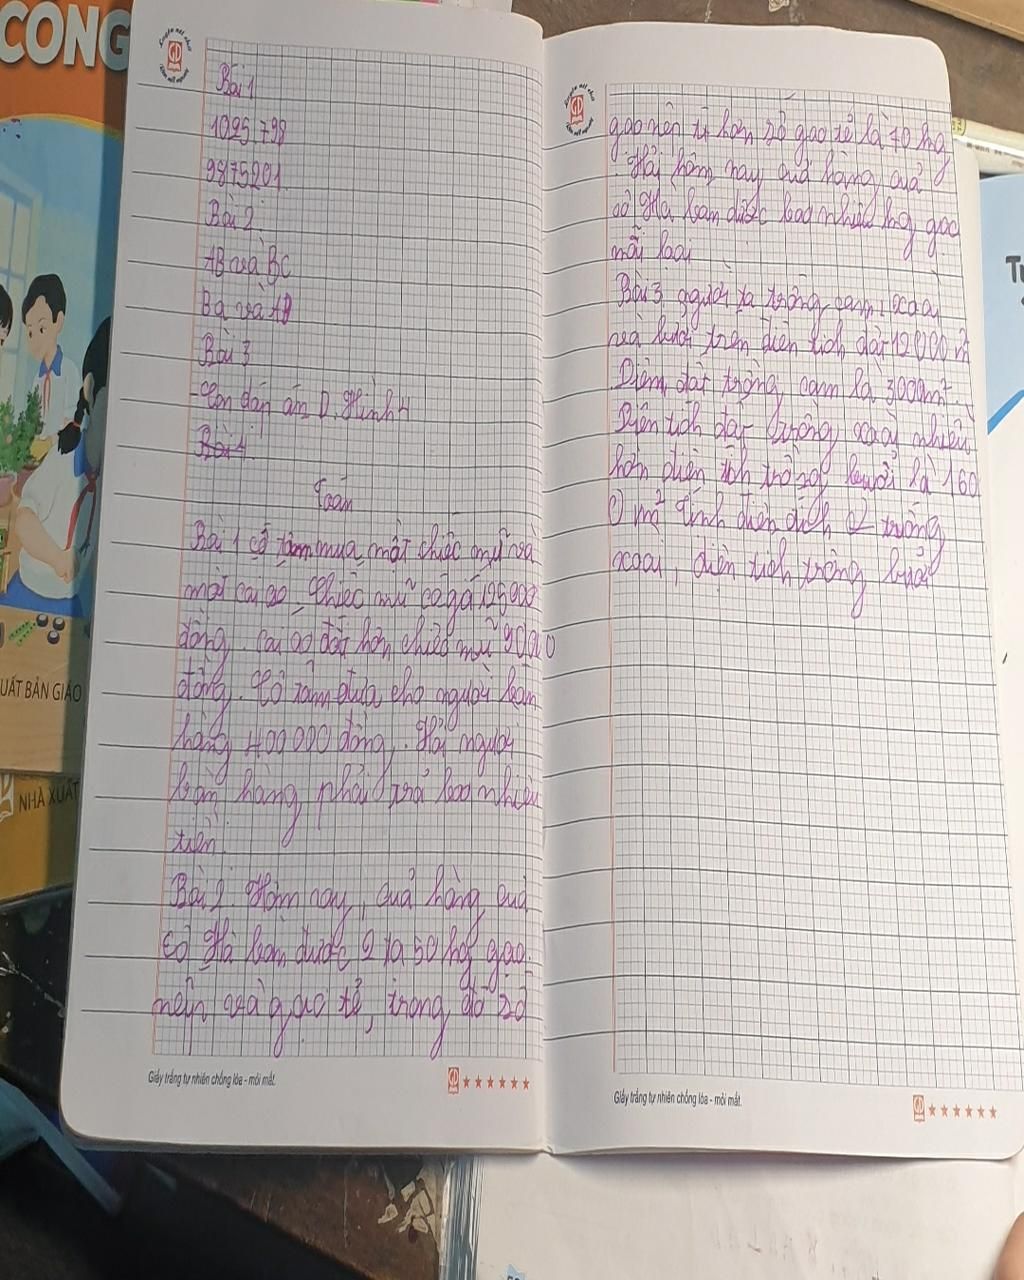 CONG
Bài 1
1095 798
9875201
Bài 2
AB và BC
Ba và AD
Bài 3
- Em đáp án D. Hình 4
Bài 4
Toán
Bài 1 cô tâm mua một chiếc mũ và
một cái áo. Chiếc mũ có gá 125 000
đồng. cái áo đắt hơn chiếc mũ 90000
đồng. Cô tâm đưa cho người bán
hàng 400 000 đồng. Hỏi người
bán hàng phải trả bao nhiêu
tiền.
Bài 2. Hôm nay, cuả hàng cuả
cô Hà bán được 2 tạ 50 kg gạo
nếp và gạo tẻ, trong đó số
gạo nếp ít hơn số gạo tẻ là 70 kg
Hỏi hôm nay cuả hàng cuả
cô Hà bán được bao nhiêu kg gạo
mỗi loại
Bài 3 người ta trồng cam, xoài
và bưởi trên diện tích đất 12000 m²
Diện đất trồng cam là 3000m².
Diện tích đất trồng xoài nhiều
hơn diện tích trồng bưởi là 160
0 m² Tính diện tích trồng
xoài, diện tích trồng bưởi
UẤT BẢN GIÁO
NHÀ XUẤT
Giấy trắng tự nhiên chống lóa - mỏi mắt.
GD
Giấy trắng tự nhiên chống lóa - mỏi mắt.
GD